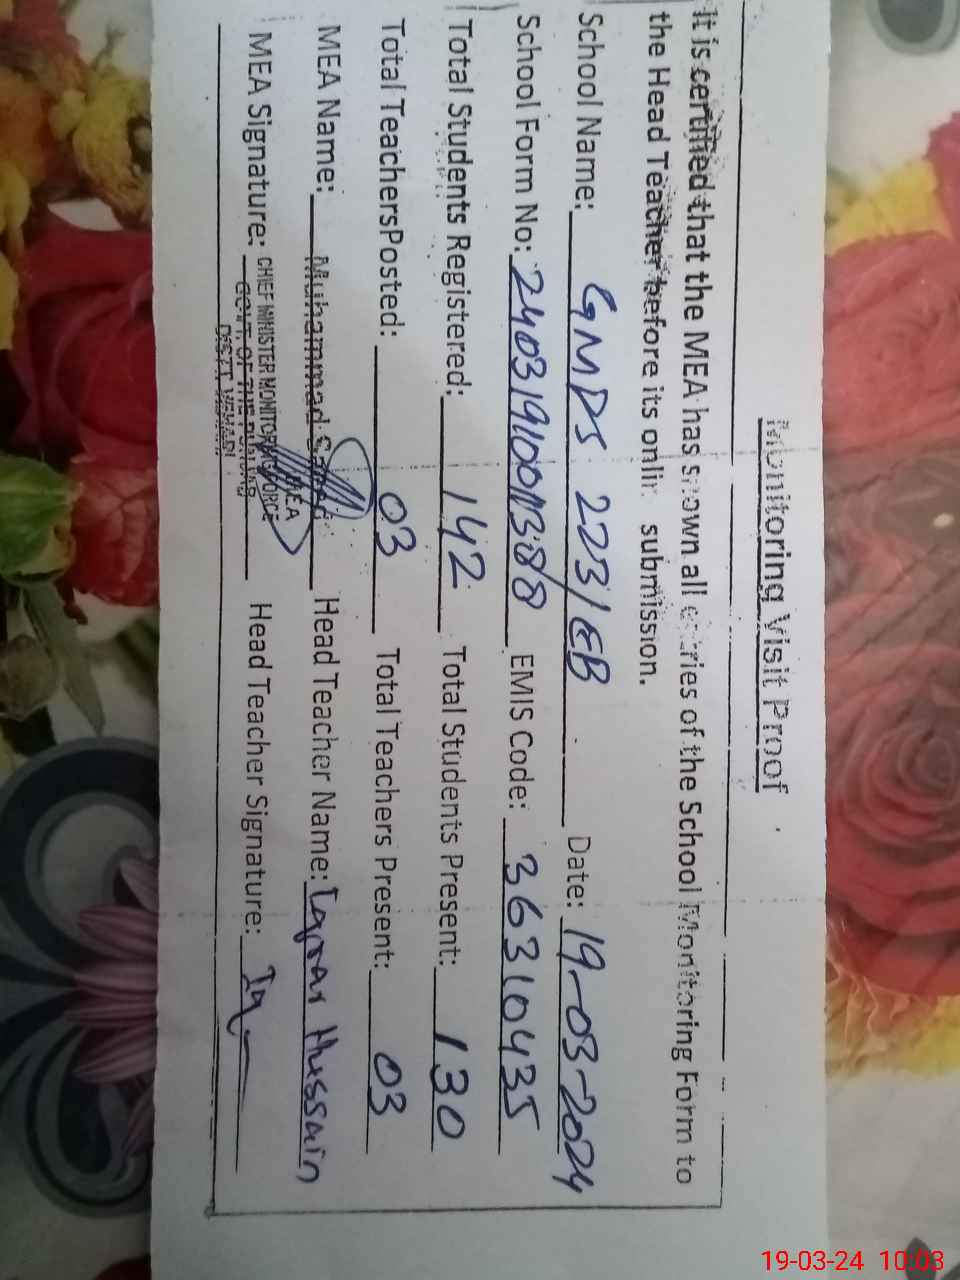 Monitoring Visit Proof
It is certified that the MEA has shown all entries of the School Monitoring Form to
the Head Teacher before its onlin submission.
School Name: GMDS 223/EB Date: 19-03-2024
School Form No: EMIS Code: 36310435
Total Students Registered: 142 Total Students Present: 130
Total TeachersPosted: 03 Total Teachers Present: 03
MEA Name: Muhammad Head Teacher Name: Iqrar Hussain
MEA Signature: Head Teacher Signature: Iq
MEA
CHIEF MINISTER MONITORING FORCE
GOVT. OF THE PUNJAB
DISTT. VEHARI
19-03-24 10:03